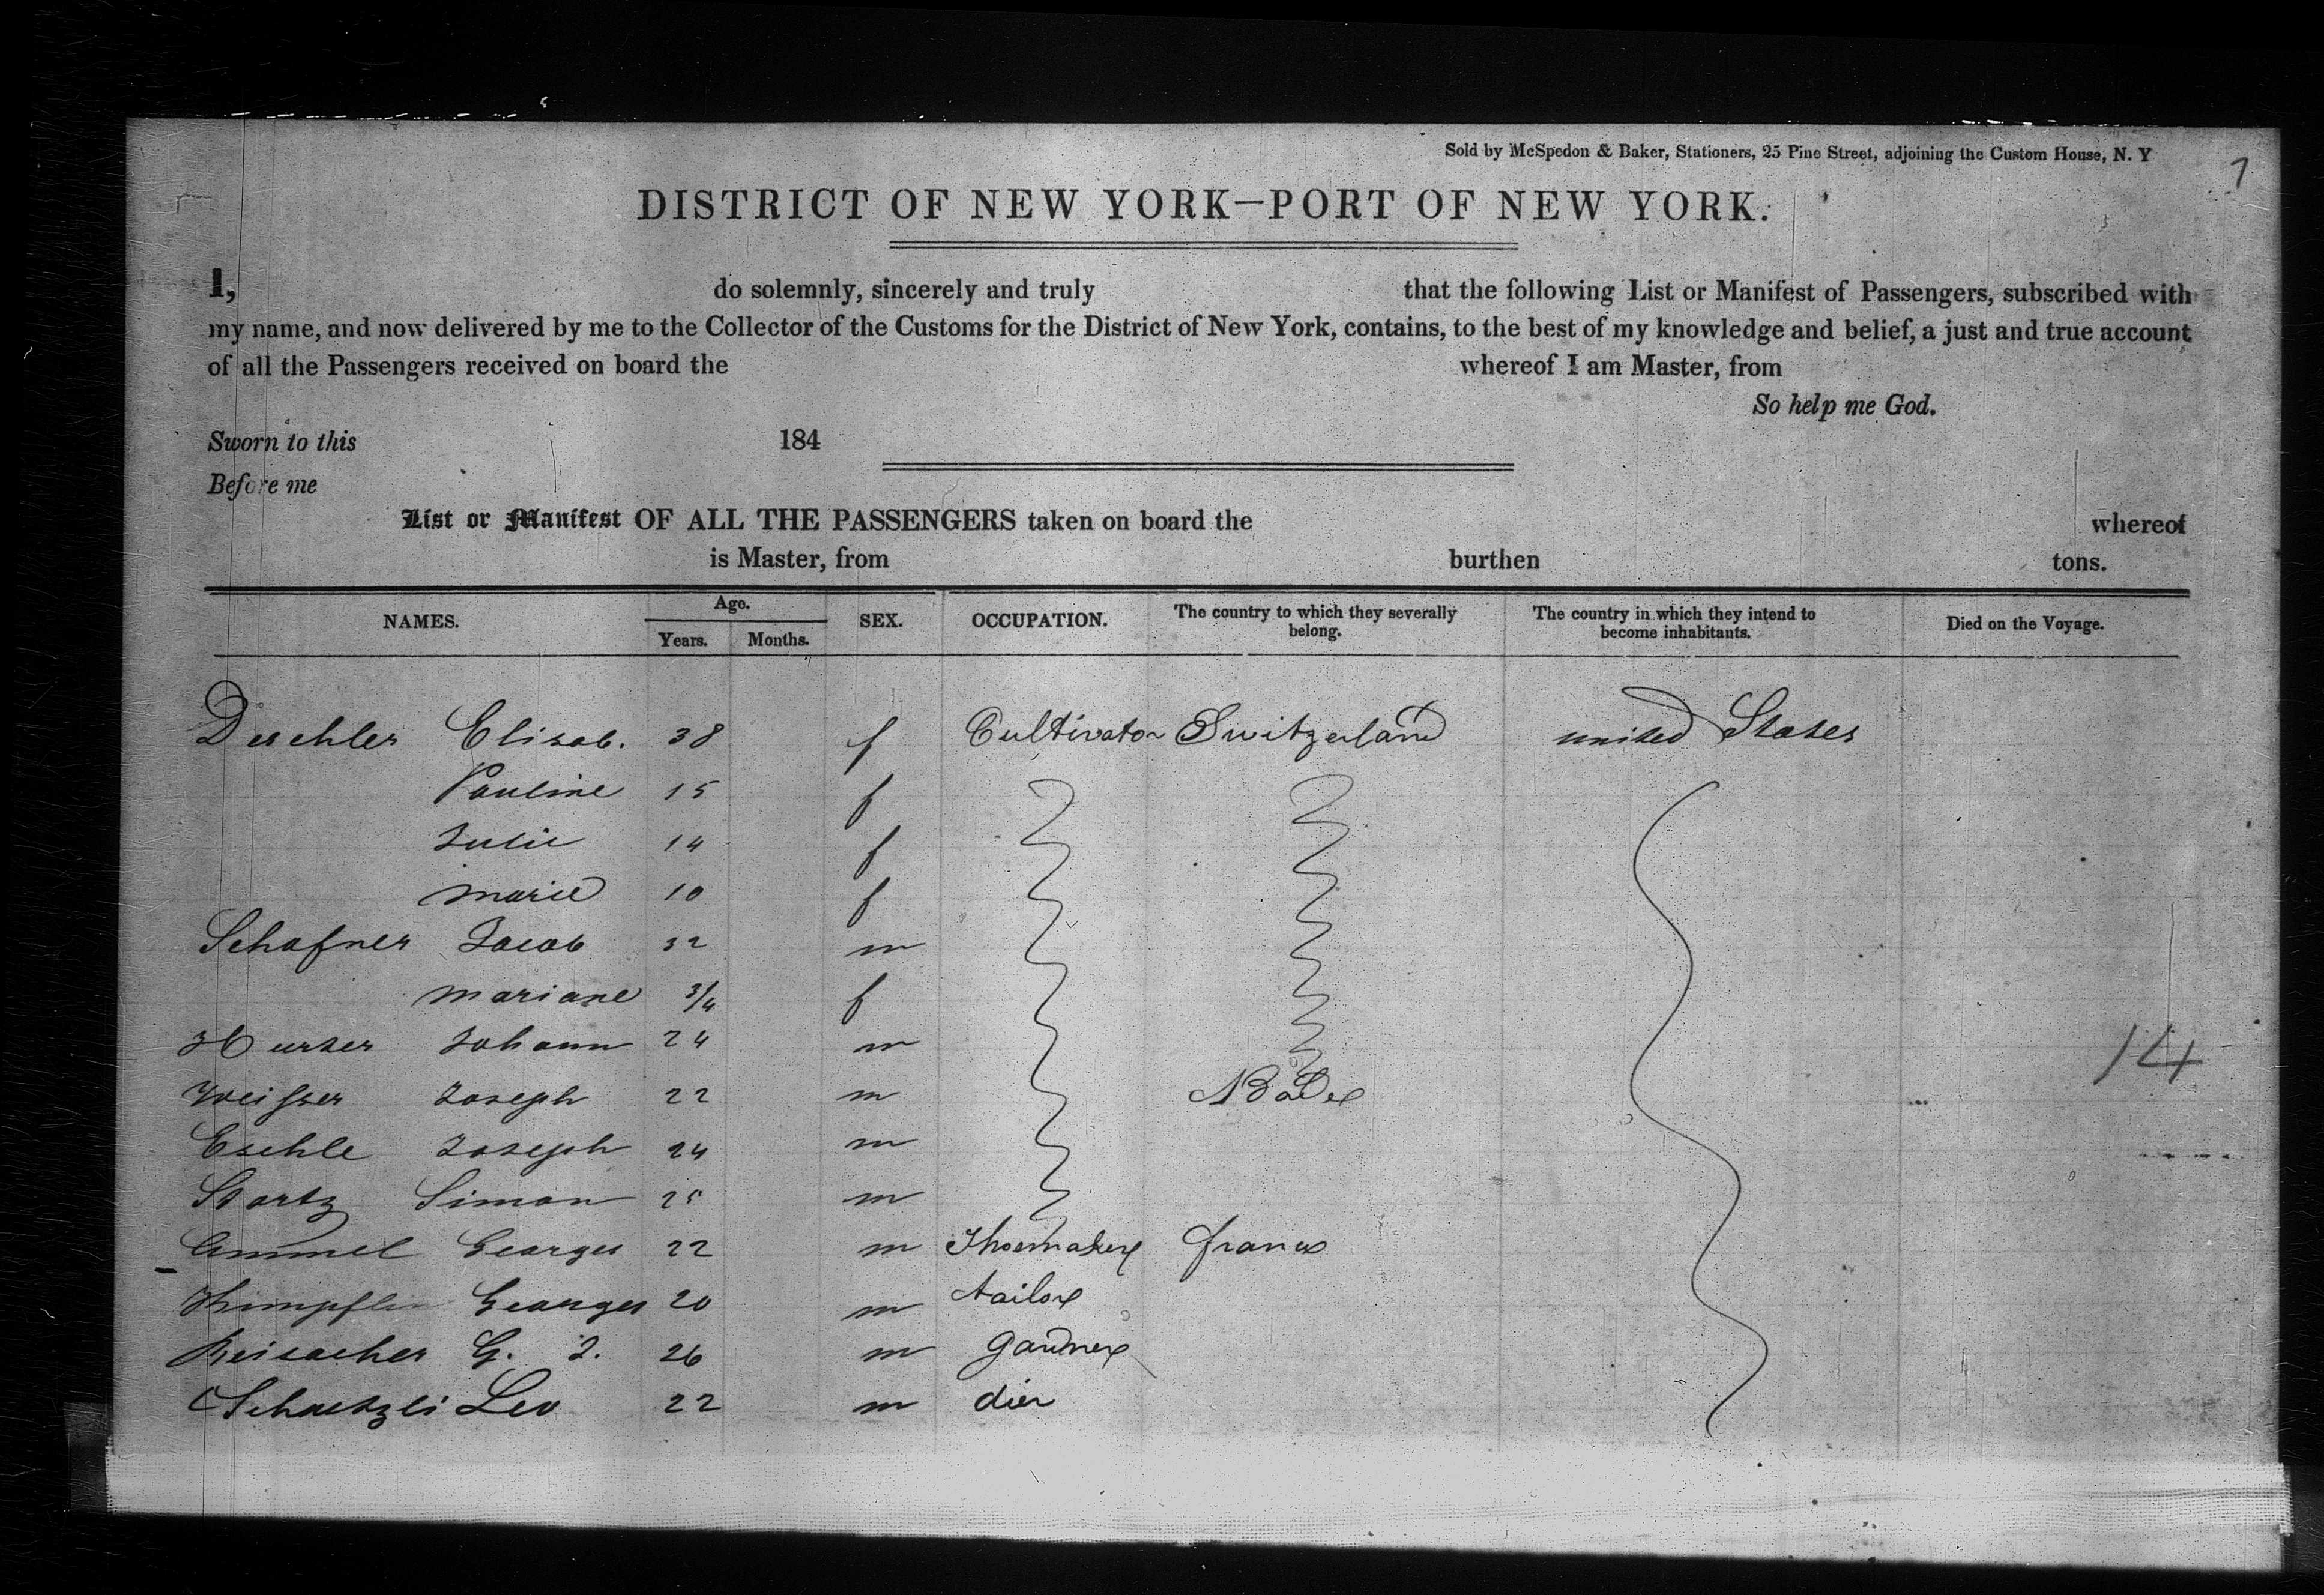 Sold by McSpedon & Baker, Stationers, 25 Pine Street, adjoining the Custom House, N. Y
7
DISTRICT OF NEW YORK—PORT OF NEW YORK.
I, do solemnly, sincerely and truly that the following List or Manifest of Passengers, subscribed with
my name, and now delivered by me to the Collector of the Customs for the District of New York, contains, to the best of my knowledge and belief, a just and true account
of all the Passengers received on board the whereof I am Master, from
So help me God.
Sworn to this 184
Before me
List or Manifest OF ALL THE PASSENGERS taken on board the whereof
is Master, from burthen tons.
NAMES. Age. Years. Months. SEX. OCCUPATION. The country to which they severally belong. The country in which they intend to become inhabitants. Died on the Voyage.
Elisab. 38 f Cultivator Switzerland united States
Pauline 15 f
Julie 14 f
marie 10 f
Schafner Jacob 32 m
mariane 3/4 f
Johann 24 m
14
Weisser Joseph 22 m Bade
Eschle Joseph 24 m
Startz Simon 25 m
Ammel Georges 22 m Shoemaker france
Georges 20 m tailor
Reisacher G. J. 26 m gardner
Schaetzli Leo 22 m dier